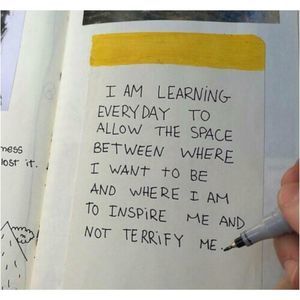 I AM LEARNING
EVERYDAY TO
ALLOW THE SPACE
BETWEEN WHERE
I WANT TO BE
AND WHERE I AM
TO INSPIRE ME AND
NOT TERRIFY ME.
lost it.